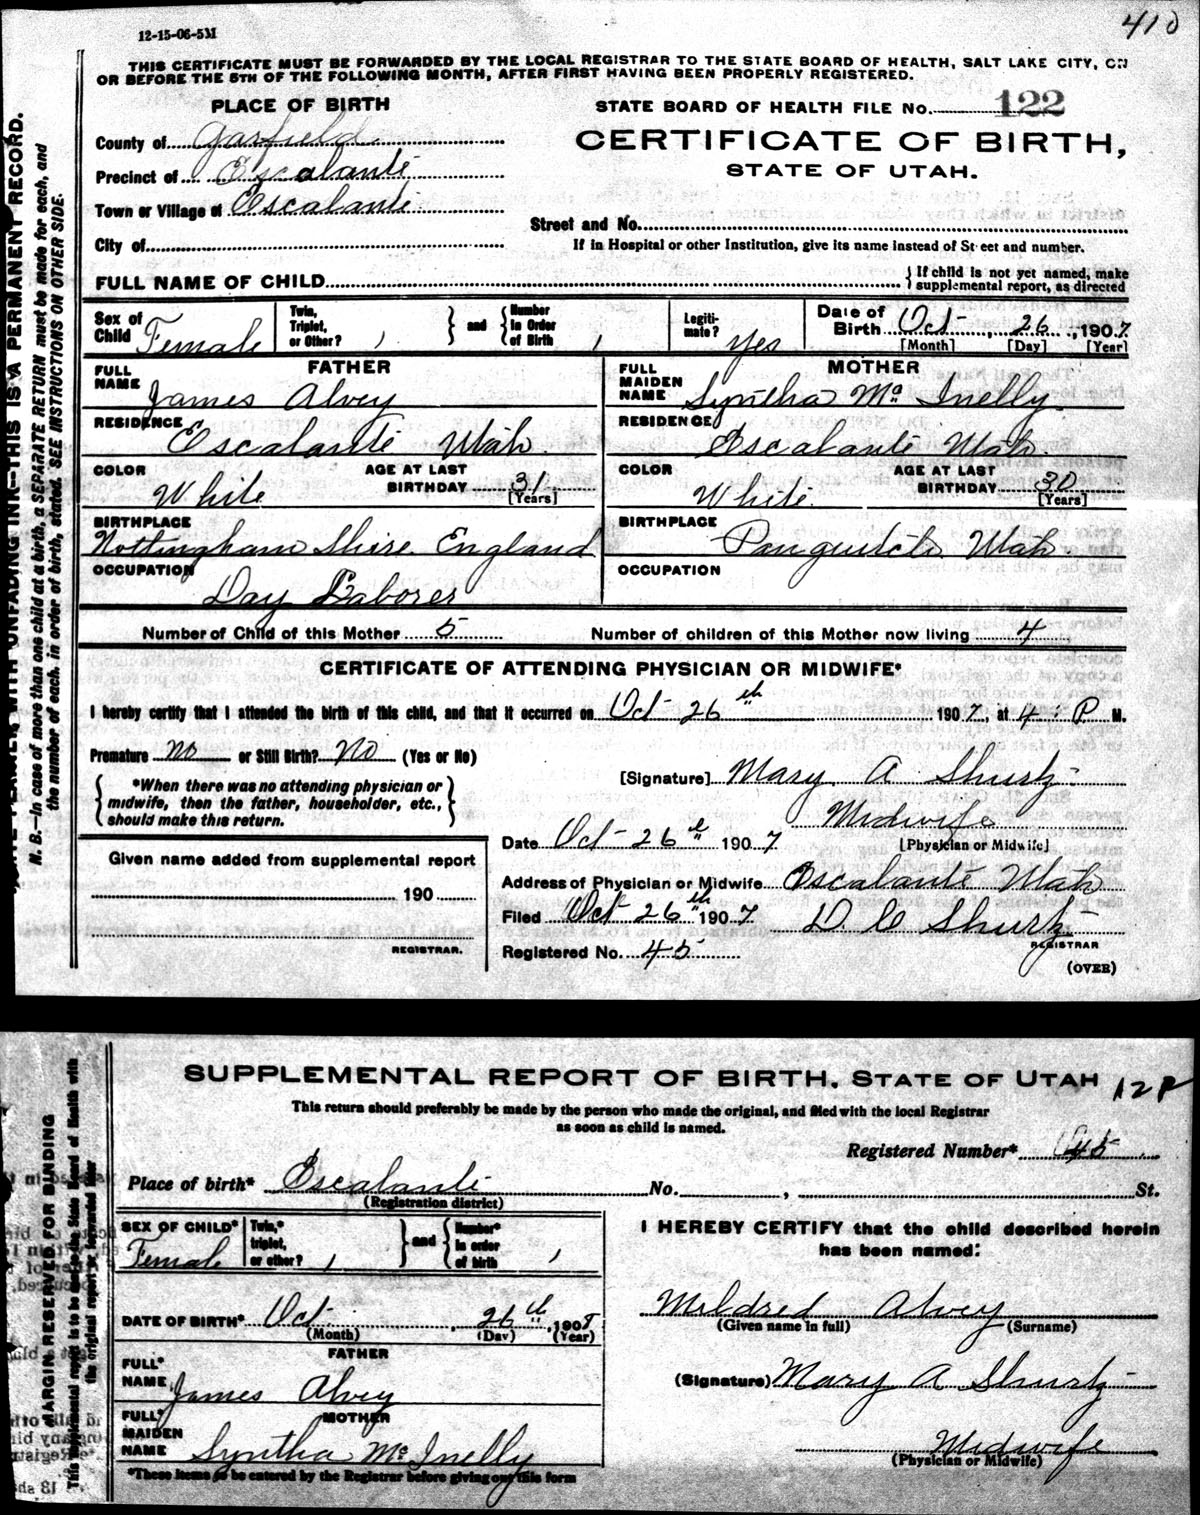 410
12-15-06-5M
THIS CERTIFICATE MUST BE FORWARDED BY THE LOCAL REGISTRAR TO THE STATE BOARD OF HEALTH, SALT LAKE CITY, ON
OR BEFORE THE 5TH OF THE FOLLOWING MONTH, AFTER FIRST HAVING BEEN PROPERLY REGISTERED.
PLACE OF BIRTH
County of Garfield
Precinct of Escalante
Town or Village of Escalante
City of
STATE BOARD OF HEALTH FILE No. 122
CERTIFICATE OF BIRTH,
STATE OF UTAH.
Street and No.
If in Hospital or other Institution, give its name instead of Street and number.
FULL NAME OF CHILD
If child is not yet named, make
supplemental report, as directed
Sex of Child Female
Twin, Triplet, or Other?
and
Number in Order of Birth
Legitimate? Yes
Date of Birth Oct 26, 1907
[Month] [Day] [Year]
FATHER
FULL NAME James Alvey
RESIDENCE Escalante Utah
COLOR White
AGE AT LAST BIRTHDAY 31
[Years]
BIRTHPLACE
Nottingham Shire England
OCCUPATION
Day Laborer
MOTHER
FULL MAIDEN NAME Syntha Mc Inelly
RESIDENCE Escalante Utah
COLOR White
AGE AT LAST BIRTHDAY 30
[Years]
BIRTHPLACE
Panguitch Utah
OCCUPATION
Number of Child of this Mother 5 Number of children of this Mother now living 4
CERTIFICATE OF ATTENDING PHYSICIAN OR MIDWIFE*
I hereby certify that I attended the birth of this child, and that it occurred on Oct 26th 1907, at 4: P M.
Premature no or Still Birth? No (Yes or No)
*When there was no attending physician or
midwife, then the father, householder, etc.,
should make this return.
[Signature] Mary A Shurtz
Midwife
[Physician or Midwife]
Date Oct 26th 1907
Given name added from supplemental report
190
REGISTRAR.
Address of Physician or Midwife Escalante Utah
Filed Oct 26th 1907 D C Shurtz
REGISTRAR
Registered No. 45
(OVER)
WITH UNFADING INK—THIS IS A PERMANENT RECORD.
N. B.—In case of more than one child at a birth, a SEPARATE RETURN must be made for each, and
the number of each, in order of birth, stated. SEE INSTRUCTIONS ON OTHER SIDE.
SUPPLEMENTAL REPORT OF BIRTH, STATE OF UTAH
This return should preferably be made by the person who made the original, and filed with the local Registrar
as soon as child is named.
Registered Number* 45
Place of birth* Escalante No. , St.
(Registration district)
SEX OF CHILD* Female
Twin,* triplet, or other?
and
Number* in order of birth
DATE OF BIRTH* Oct. 26th, 1908
(Month) (Day) (Year)
FATHER
FULL* NAME James Alvey
MOTHER
FULL* MAIDEN NAME Syntha Mc Inelly
*These items to be entered by the Registrar before giving out this form
I HEREBY CERTIFY that the child described herein
has been named:
Mildred Alvey
(Given name in full) (Surname)
(Signature) Mary A Shurtz
Midwife
(Physician or Midwife)
MARGIN RESERVED FOR BINDING